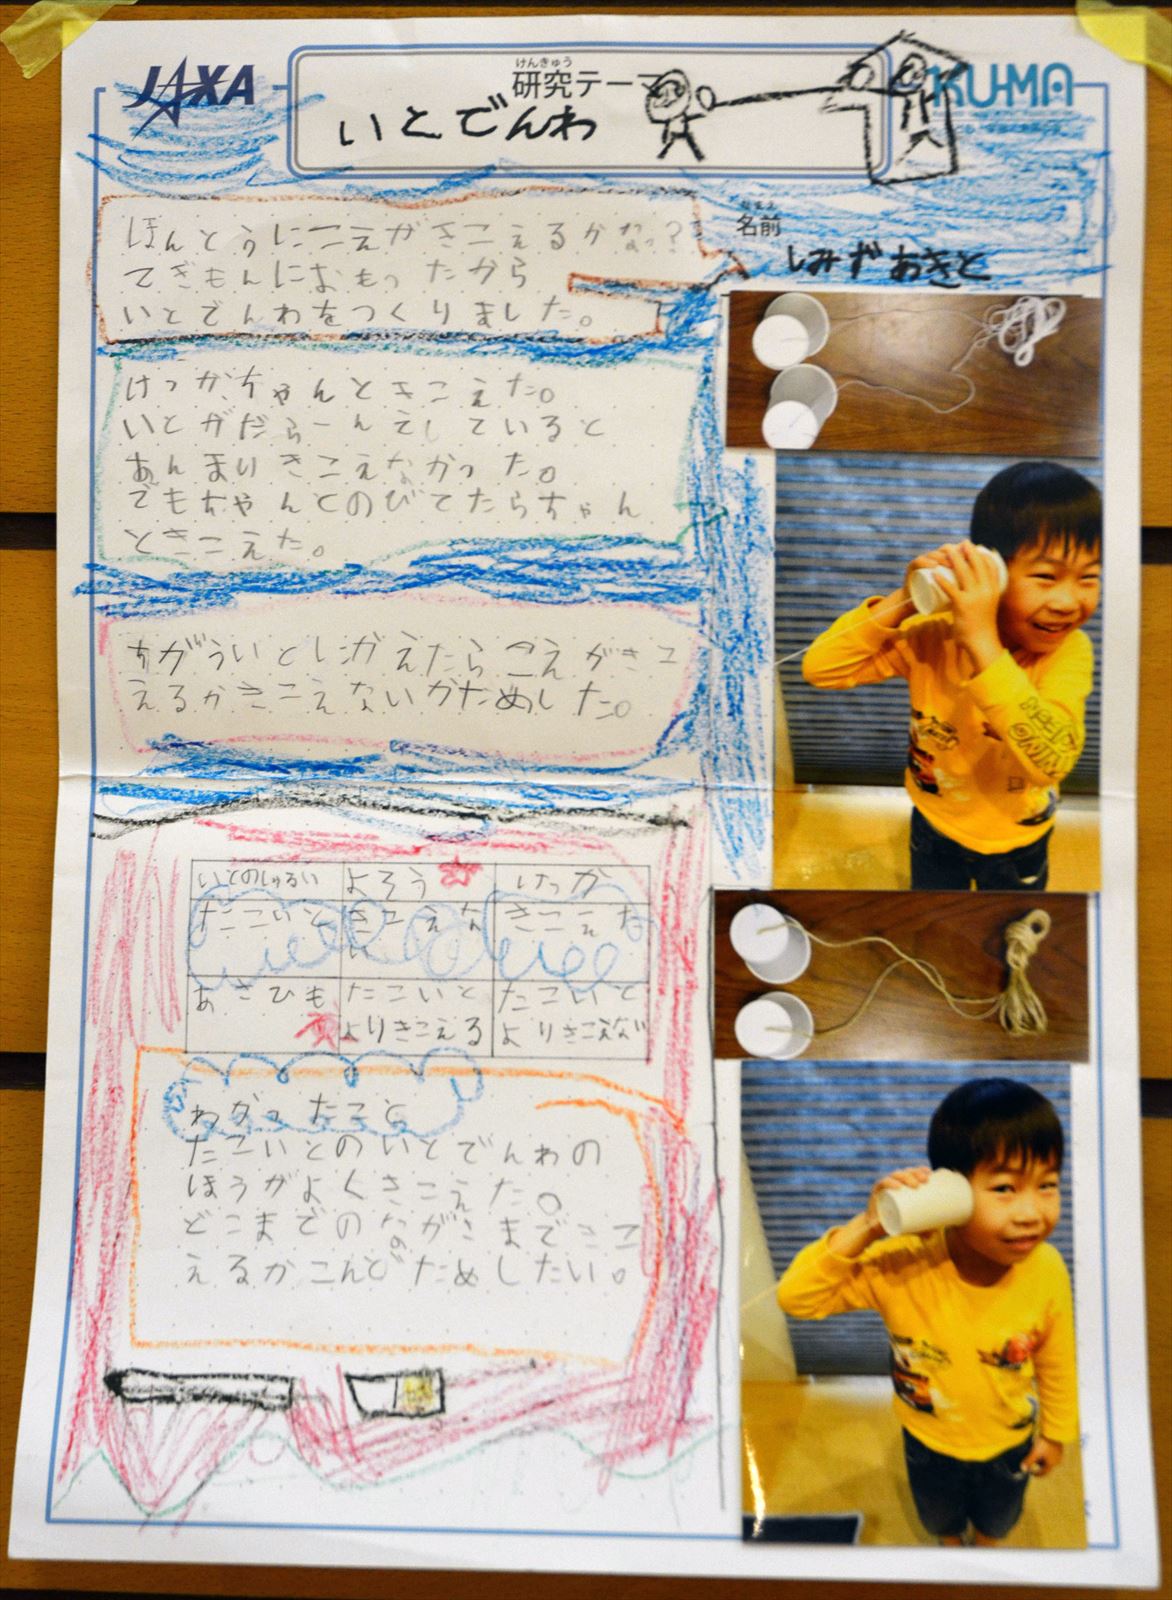 JAXA
けんきゅう
研究テーマ
いとでんわ
KU-MA
なまえ
名前
しみずあきと
ほんとうにこえがきこえるかなっ?
てぎもんにおもったから
いとでんわをつくりました。
けっか、ちゃんときこえた。
いとがだらーんえしていると
あんまりきこえなかった。
でもちゃんとのびてたらちゃん
ときこえた。
ちがういとにかえたらこえがきこ
えるかきこえないかためした。
いとのしゅるい よそう けっか
たこいと きこえな きこえた
い
あさひも たこいと たこいと
よりきこえる よりきこえない
わかったこと
たこいとのいとでんわの
ほうがよくきこえた。
どこまでのながさまできこ
えるかこんどためしたい。